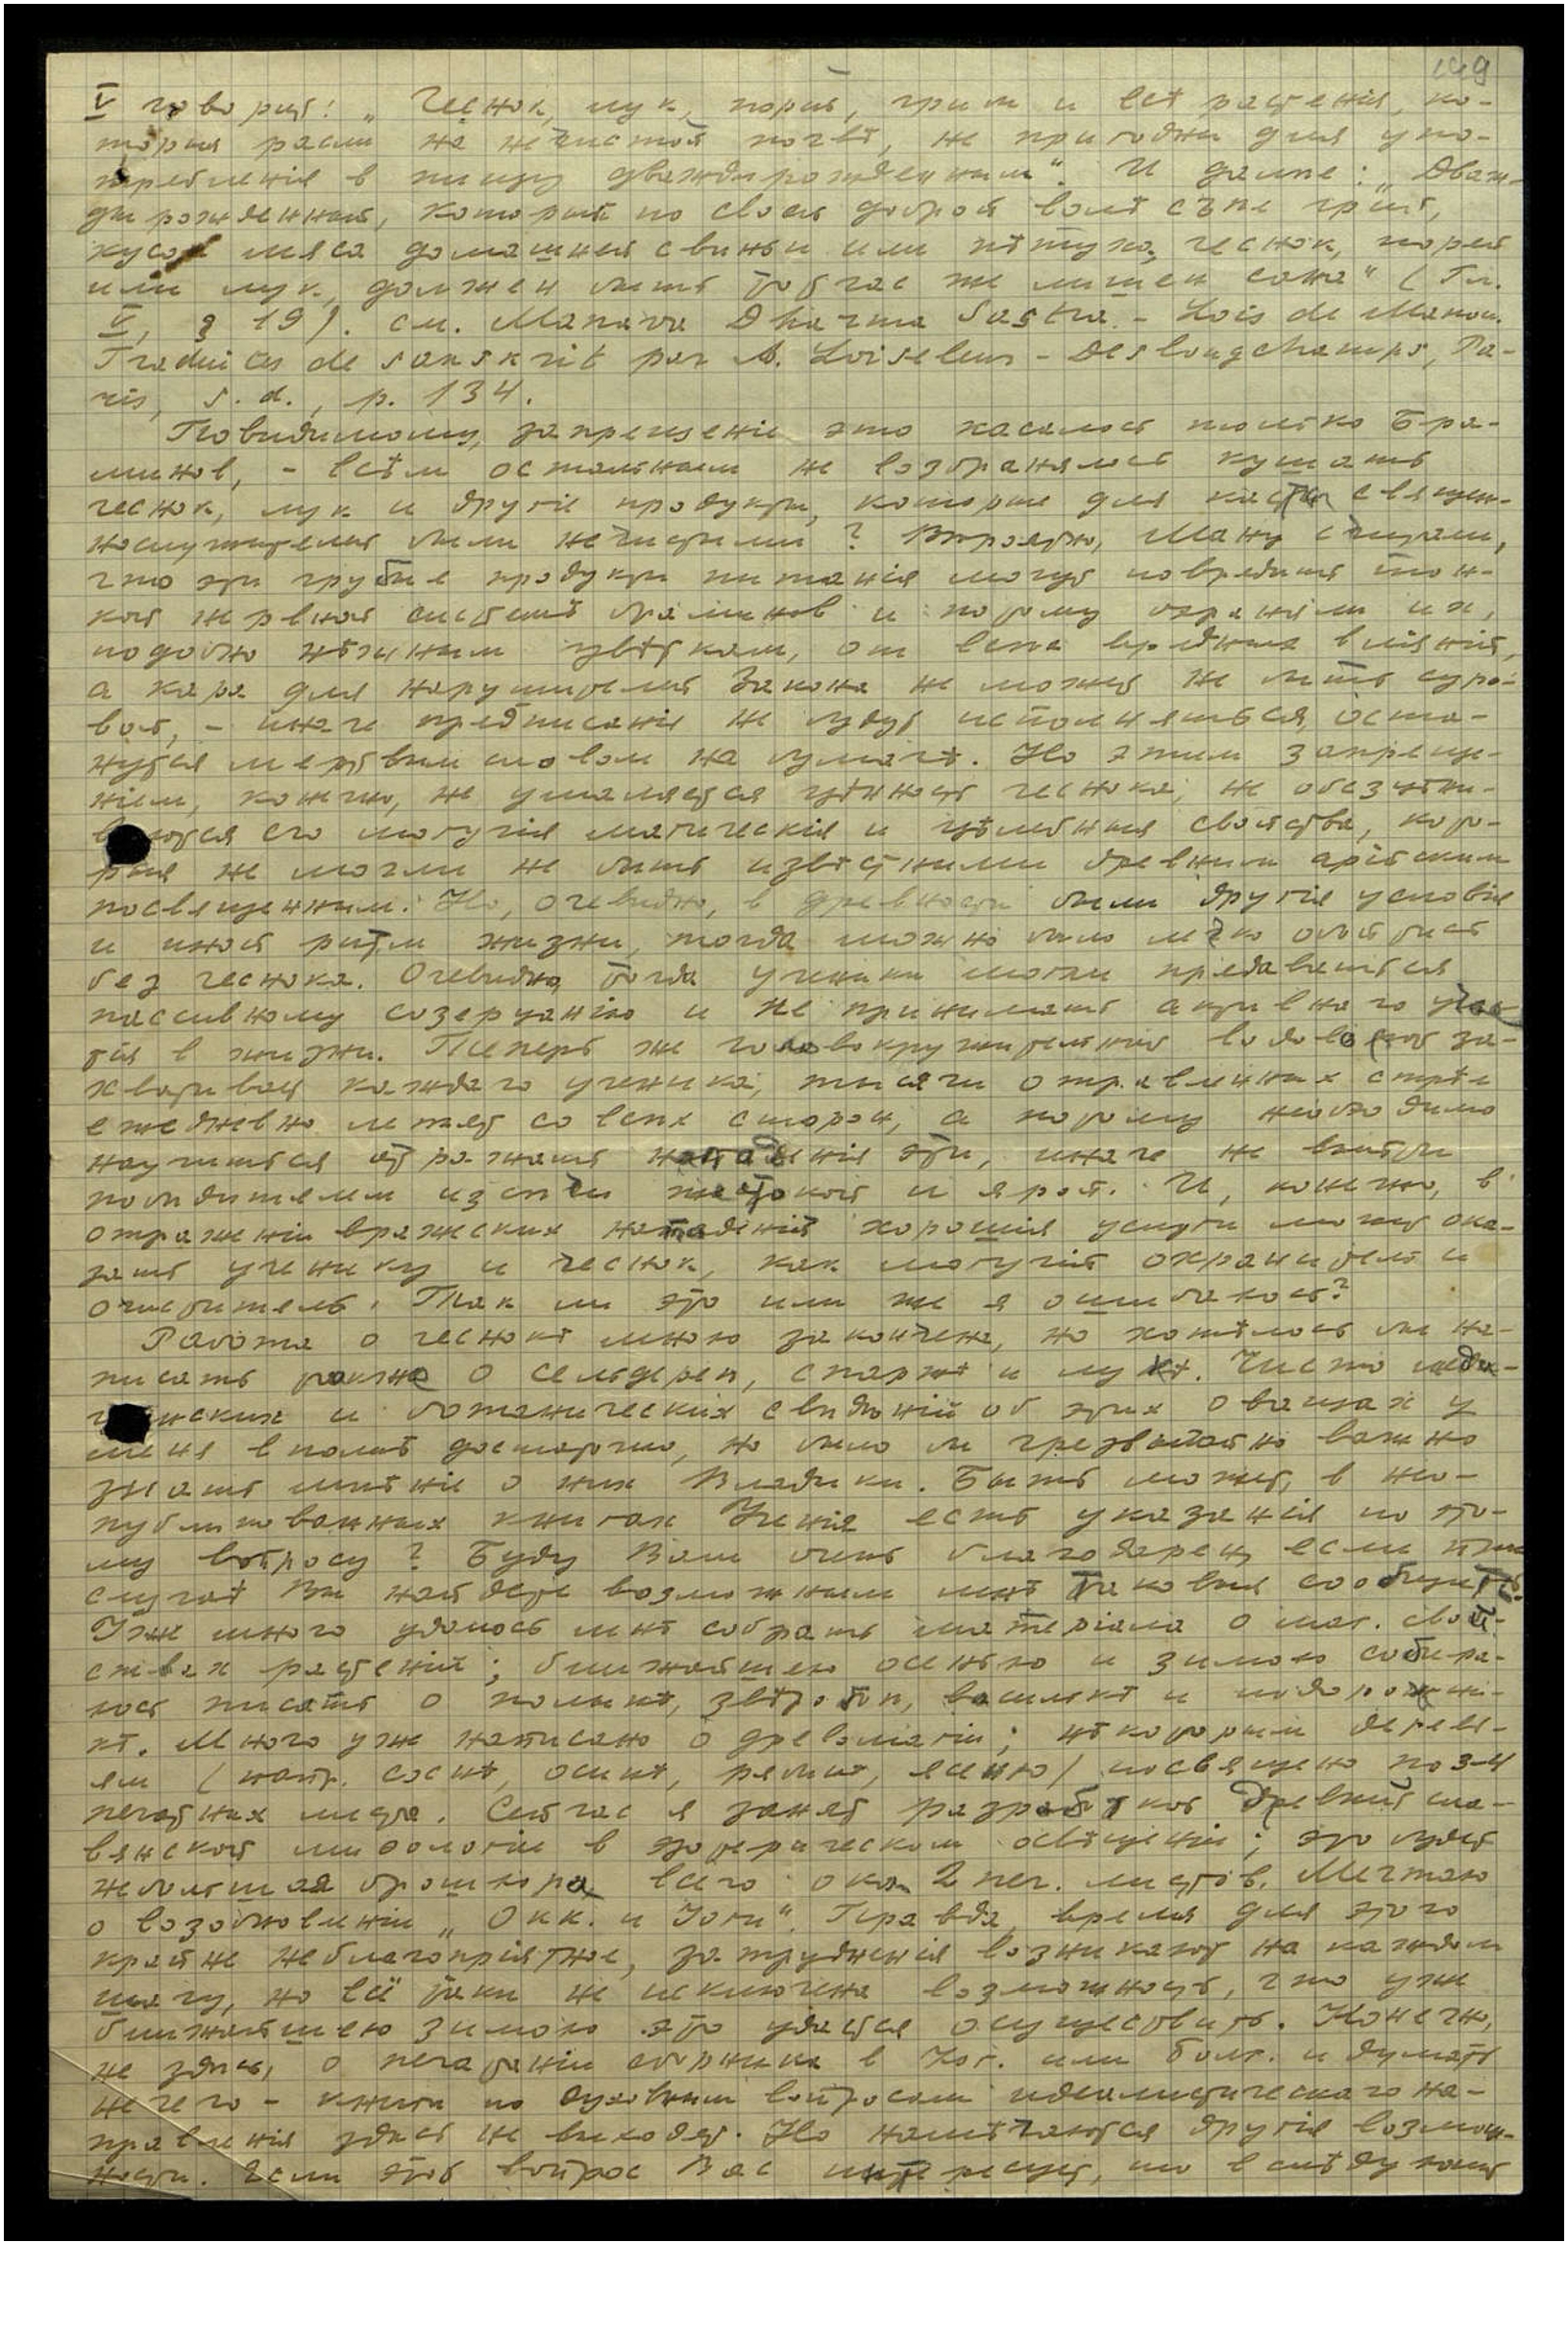 149
V говорит: „Чеснок, лук, порей, гриб и всѣ растенія, ко-
торыя расли на нечистой почвѣ, не пригодны для упо-
требленія в пищу дваждырожденным“. И далѣе: „Дваж-
дырожденный, который по своей доброй волѣ съѣл гриб,
кусок мяса домашней свиньи или пѣтуха, чеснок, порей
или лук, должен быть тотчас же лишен сана“ (Гл.
V, § 19). см. Manava Dharma Sastra. - Lois de Manou.
Traduites de sanskrit par A. Loiseleur - Deslongchamps, Pa-
ris, s. d., p. 134.
Повидимому, запрещеніе это касалось только Бра-
минов, - всѣм остальным не возбранялось кушать
чеснок, лук и другіе продукты, которые для касты священ-
нослужителей были нечистыми? Вѣроятно, Ману считали,
что эти грубые продукты питанія могут повредить тон-
кой нервной системѣ браминов и потому охраняли их,
подобно нѣжным цвѣткам, от всѣх вредных вліяній,
а кара для нарушителей Закона не может не быть суро-
вой, - иначе предписаніе не будут исполняться, оста-
нутся мертвым словом на бумагѣ. Но этим запреще-
ніем, конечно, не умаляется цѣнность чеснока, не обезцѣни-
ваются его могучія магическія и цѣлебныя свойства, кото-
рыя не могли не быть извѣстными древним арійским
посвященным. Но, очевидно, в древности были другія условія
и иной ритм жизни, тогда можно было легко обойтись
без чеснока. Очевидно, тогда ученики могли предаваться
пассивному созерцанію и не принимать активнаго учас-
тія в жизни. Теперь же головокружительный водоворот за-
хватывает каждаго ученика, тысячи отравленных стрѣл
ежедневно летят со всѣх сторон, а потому необходимо
научиться отражать нападенія эти, иначе не выйти
побѣдителем из сѣчи жестокой и ярой. И, конечно, в
отраженіи вражеских нападеній хорошія услуги может ока-
зать ученику и чеснок, как могучій охранитель и
очиститель. Так ли это или же я ошибаюсь?
Работа о чеснокѣ мною закончена, но хотѣлось бы на-
писать также о сельдереѣ, спаржѣ и лукѣ. Чисто меди-
цинских и ботанических свѣдѣній об этих овощах у
меня вполнѣ достаточно, но было бы чрезвычайно важно
знать мнѣніе о них Владыки. Быть может, в нео-
публикованных книгах Ученія есть указанія по это-
му вопросу? Буду Вам очень благодарен, если при
случаѣ Вы найдете возможным мнѣ таковыя сообщить.
Уже много удалось мнѣ собрать матеріала о маг. свой-
ствах растеній; ближайшею осенью и зимою собира-
юсь писать о полыни, звѣробоѣ, васильке и подорожни-
кѣ. Много уже написано о древомагіи; нѣкоторым деревь-
ям (напр. соснѣ, осинѣ, рябинѣ, ясеню) посвящено по 3-4
печатных листа. Сейчас я занят разработкой древней сла-
вянской миѳологіи в эзотерическом освѣщеніи; это будет
небольшая брошюра, всего около 2 печ. листов. Мечтаю
о возобновленіи „Окк. и Йоги“. Правда, время для этого
крайне неблагопріятное, затрудненія возникают на каждом
шагу, но всё таки не исключена возможность, что уже
ближайшею зимою это удастся осуществить. Конечно,
не здѣсь, о печатаніи сборника в Юг. или Болг. и думать
нечего - книги по духовным вопросам идеалистическаго на-
правленія здѣсь не выходят. Но намѣчаются другія возмож-
ности. Если этот вопрос Вас интересует, то в слѣдующем